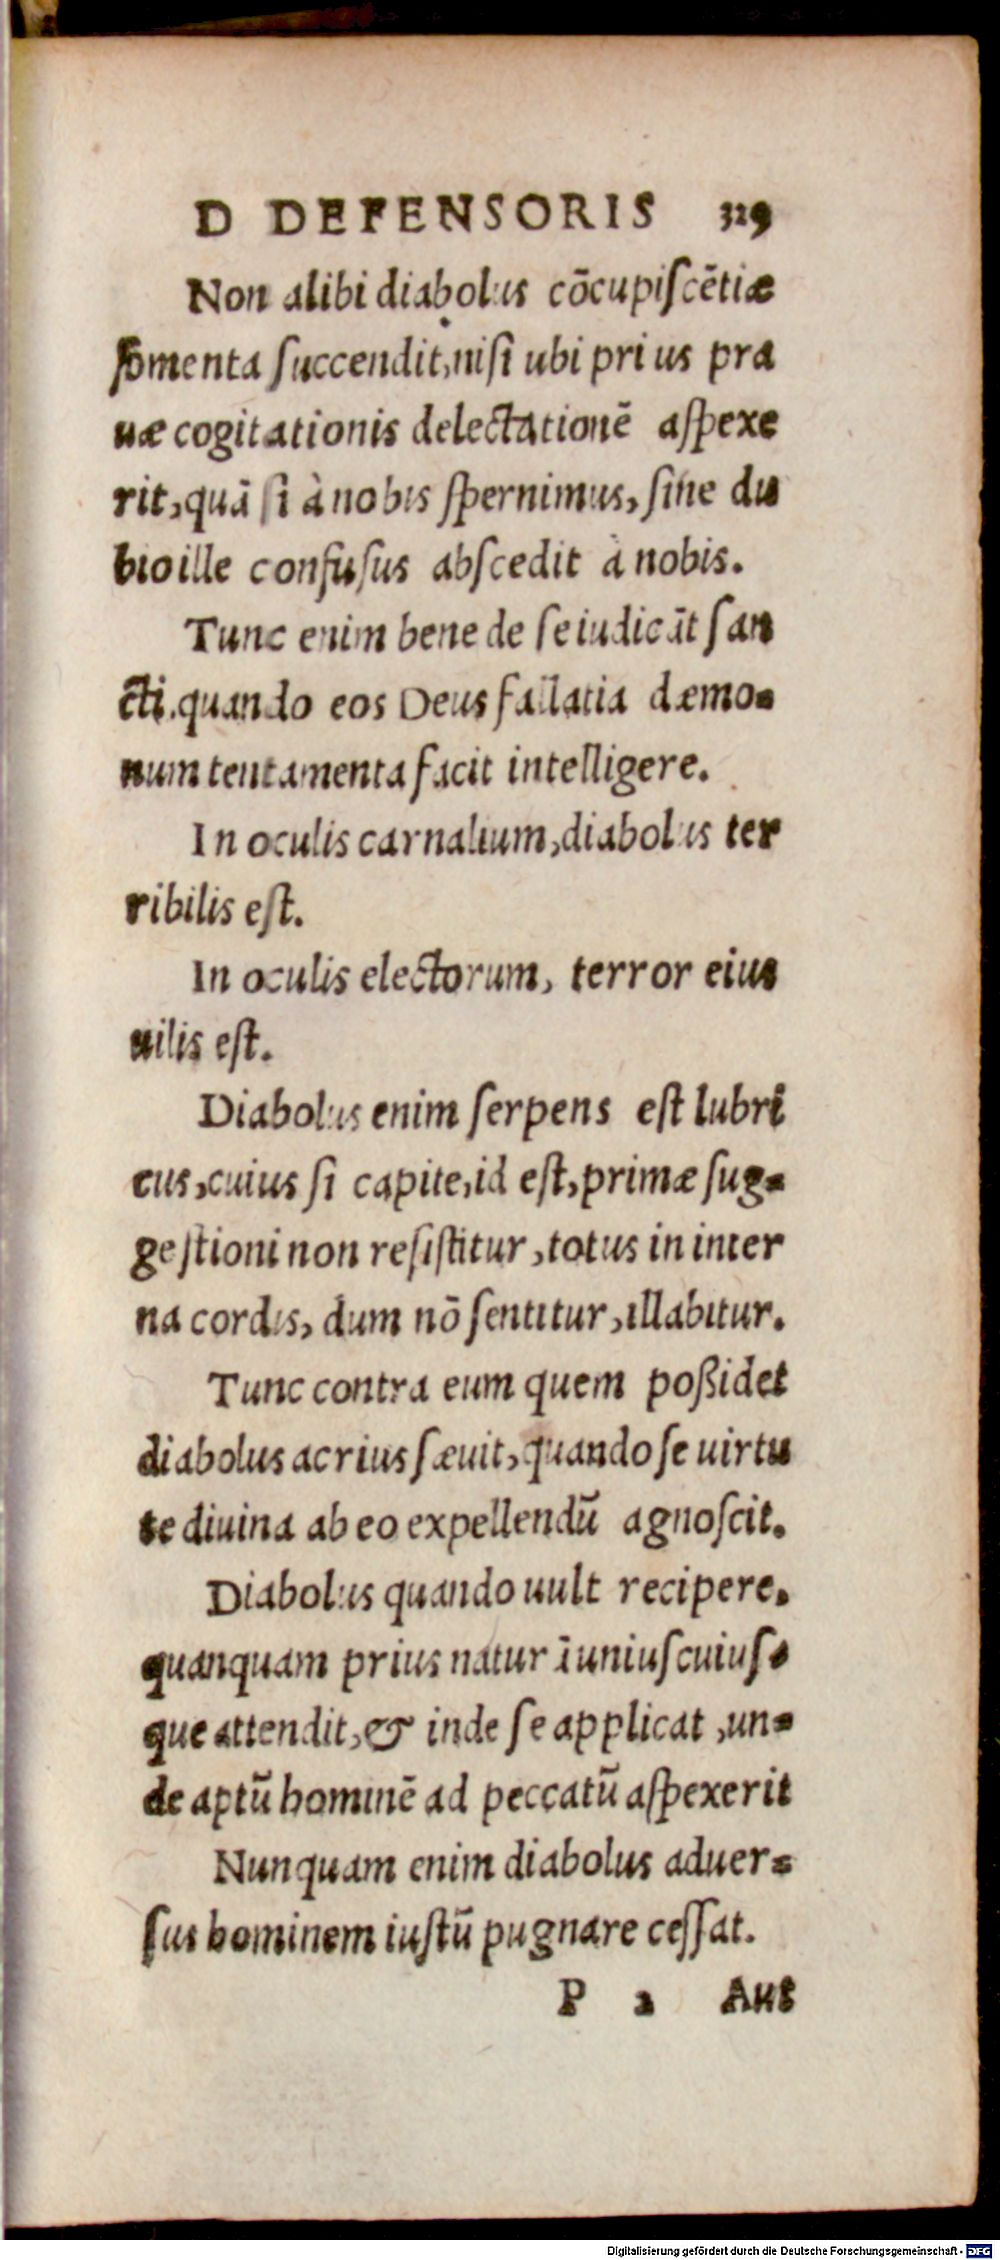 D DEFENSORIS 329
Non alibi diabolus cōcupiſcētiæ
fomenta ſuccendit, niſi ubi prius pra
uæ cogitationis delectationē aſpexe
rit, quā ſi à nobis ſpernimus, ſine du
bio ille confuſus abſcedit à nobis.
Tunc enim bene de ſe iudicāt ſan
cti. quando eos Deus fallatia dæmo-
num tentamenta facit intelligere.
In oculis carnalium, diabolus ter
ribilis eſt.
In oculis electorum, terror eius
uilis eſt.
Diabolus enim ſerpens eſt lubri
cus, cuius ſi capite, id eſt, primæ ſug-
geſtioni non reſiſtitur, totus in inter
na cordis, dum nō ſentitur, illabitur.
Tunc contra eum quem poßidet
diabolus acrius ſæuit, quando ſe uirtu
te diuina ab eo expellendū agnoſcit.
Diabolus quando uult recipere.
quanquam prius naturā uniuſcuiuſ-
que attendit, & inde ſe applicat, un-
de aptū hominē ad peccatū aſpexerit
Nunquam enim diabolus aduer-
ſus hominem iuſtū pugnare ceſſat.
P 2 Aut
Digitalisierung gefördert durch die Deutsche Forschungsgemeinschaft - DFG